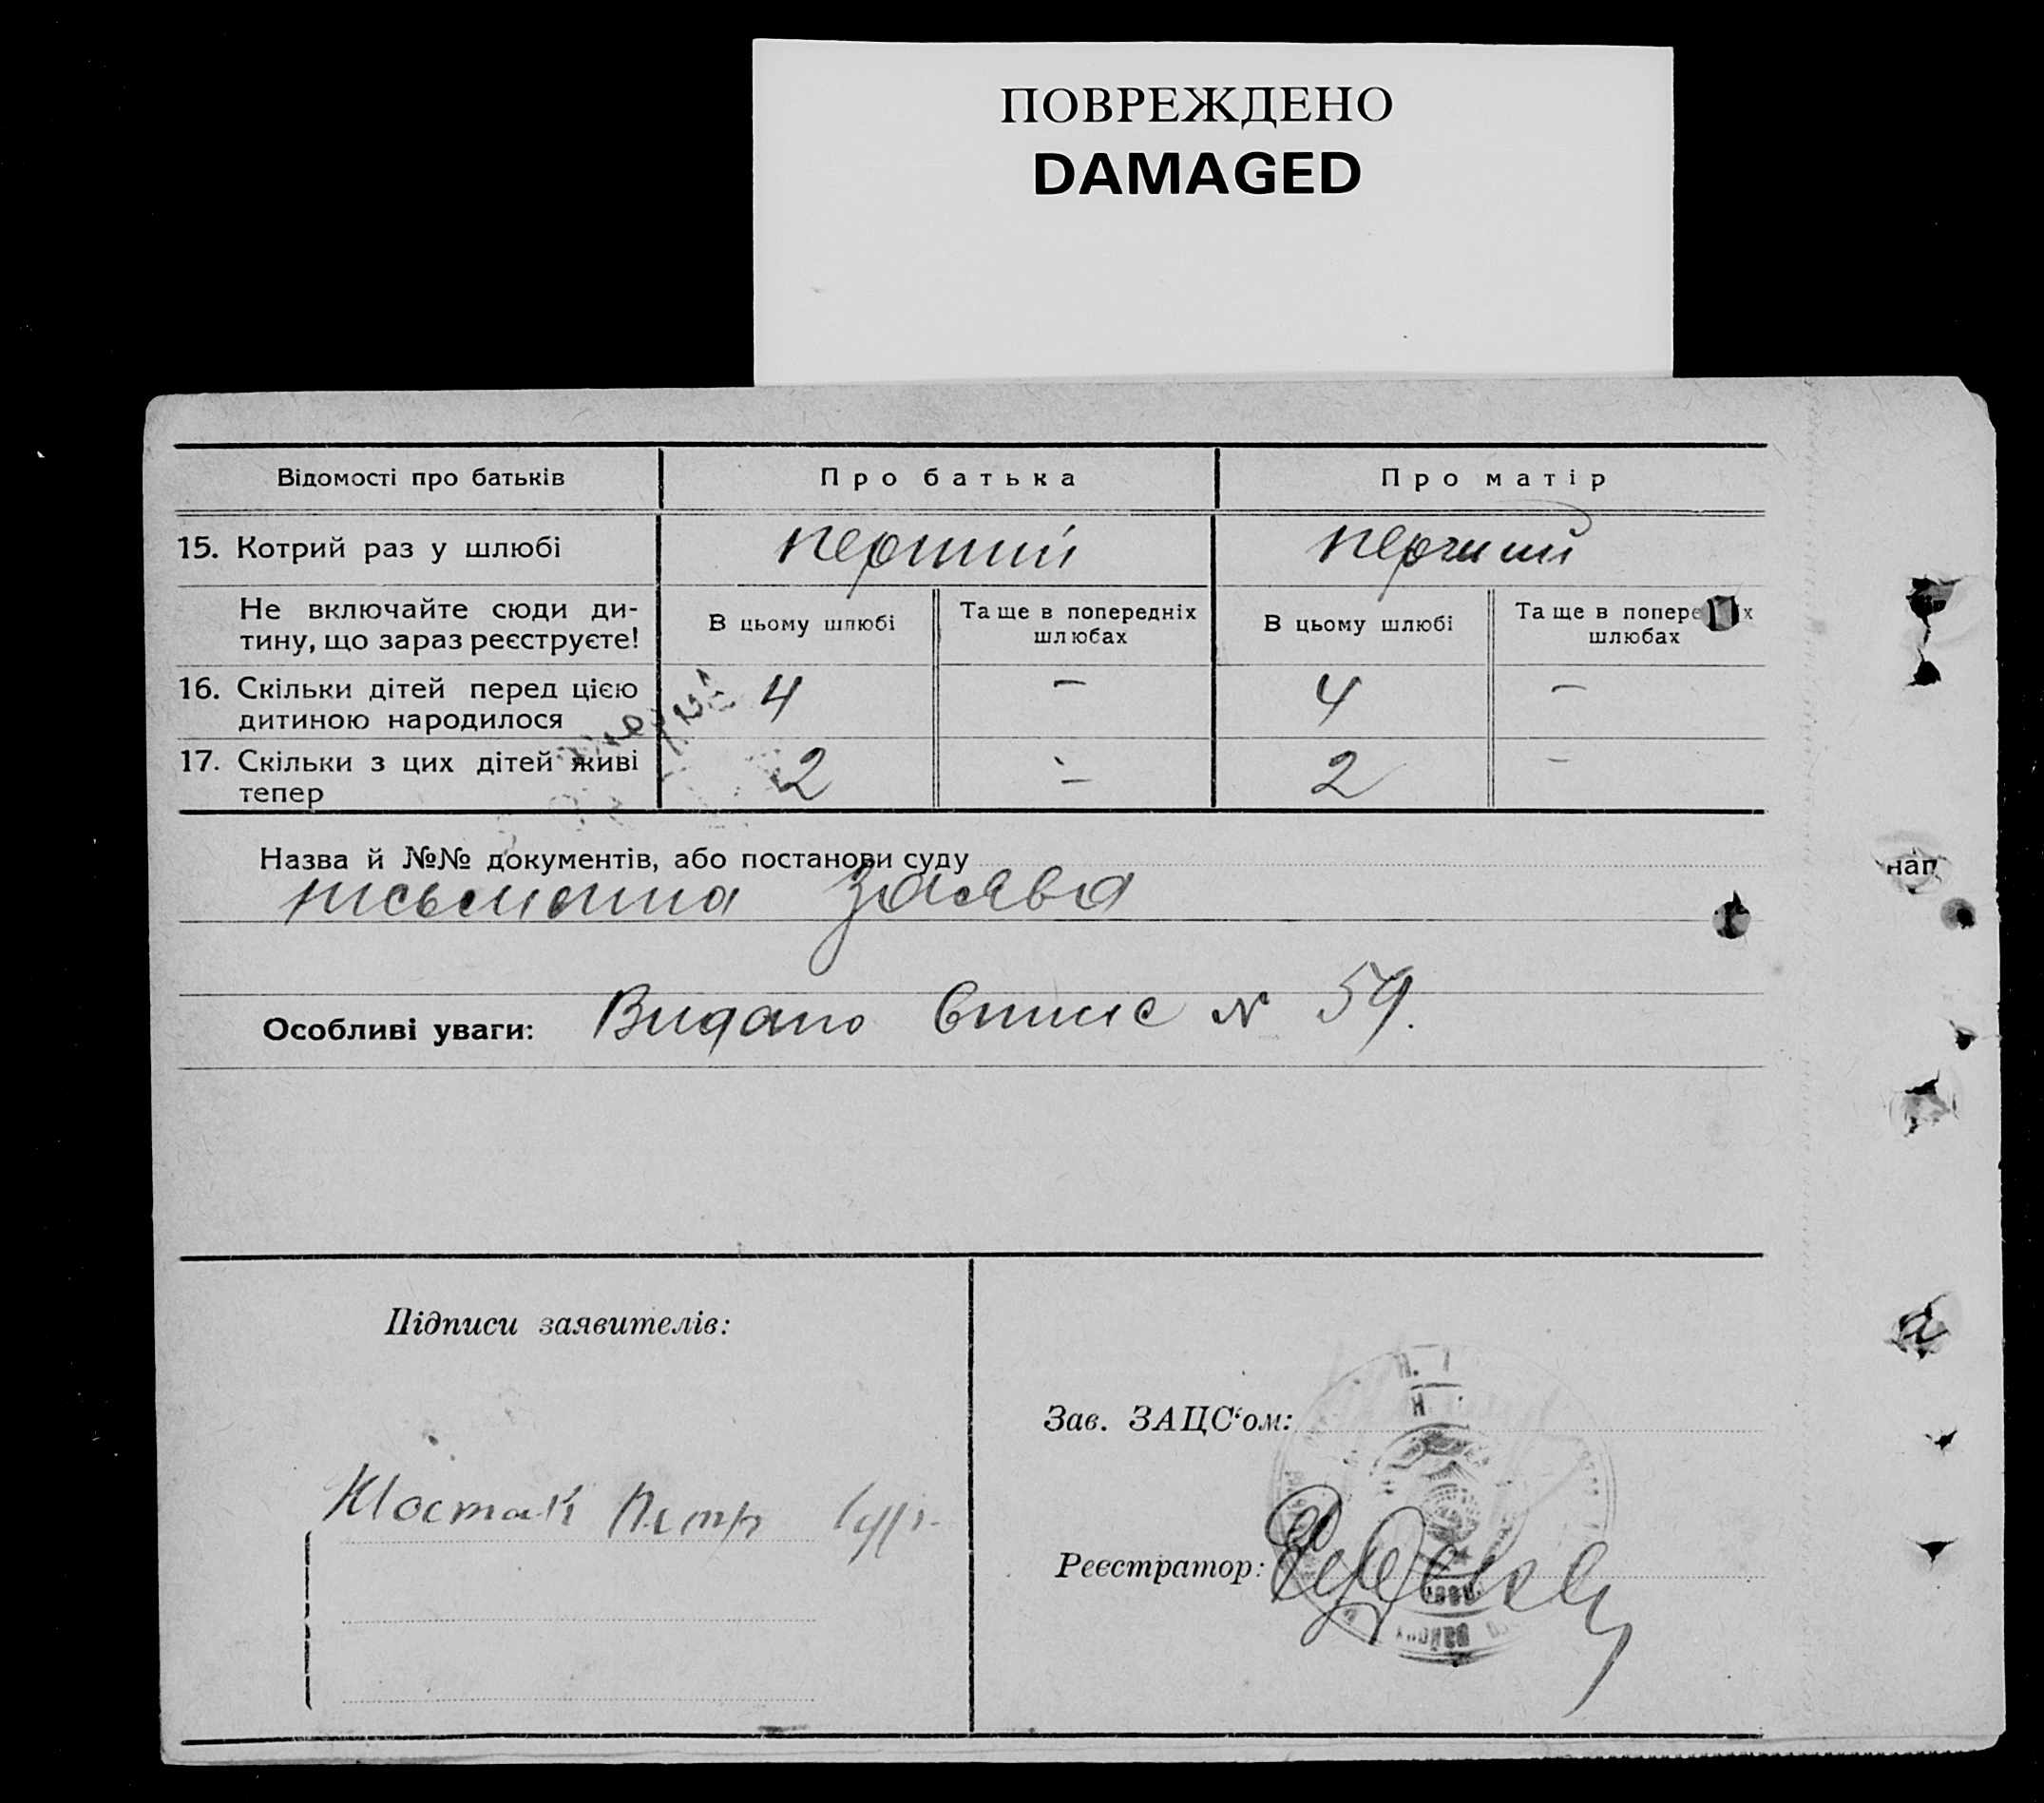 ПОВРЕЖДЕНО
DAMAGED
Відомості про батьків Про батька Про матір
15. Котрий раз у шлюбі перший перший
Не включайте сюди ди-
тину, що зараз реєструєте!
В цьому шлюбі
Та ще в попередніх
шлюбах
В цьому шлюбі
Та ще в попере х
шлюбах
16. Скільки дітей перед цією
дитиною народилося
4 – 4 –
17. Скільки з цих дітей живі
тепер
2 – 2 –
Назва й №№ документів, або постанови суду
письменна заява
Особливі уваги: Видано виписе N 59.
нап
Підписи заявителів:
Шостак Петр
Зав. ЗАЦС‘ом:
Реєстратор: